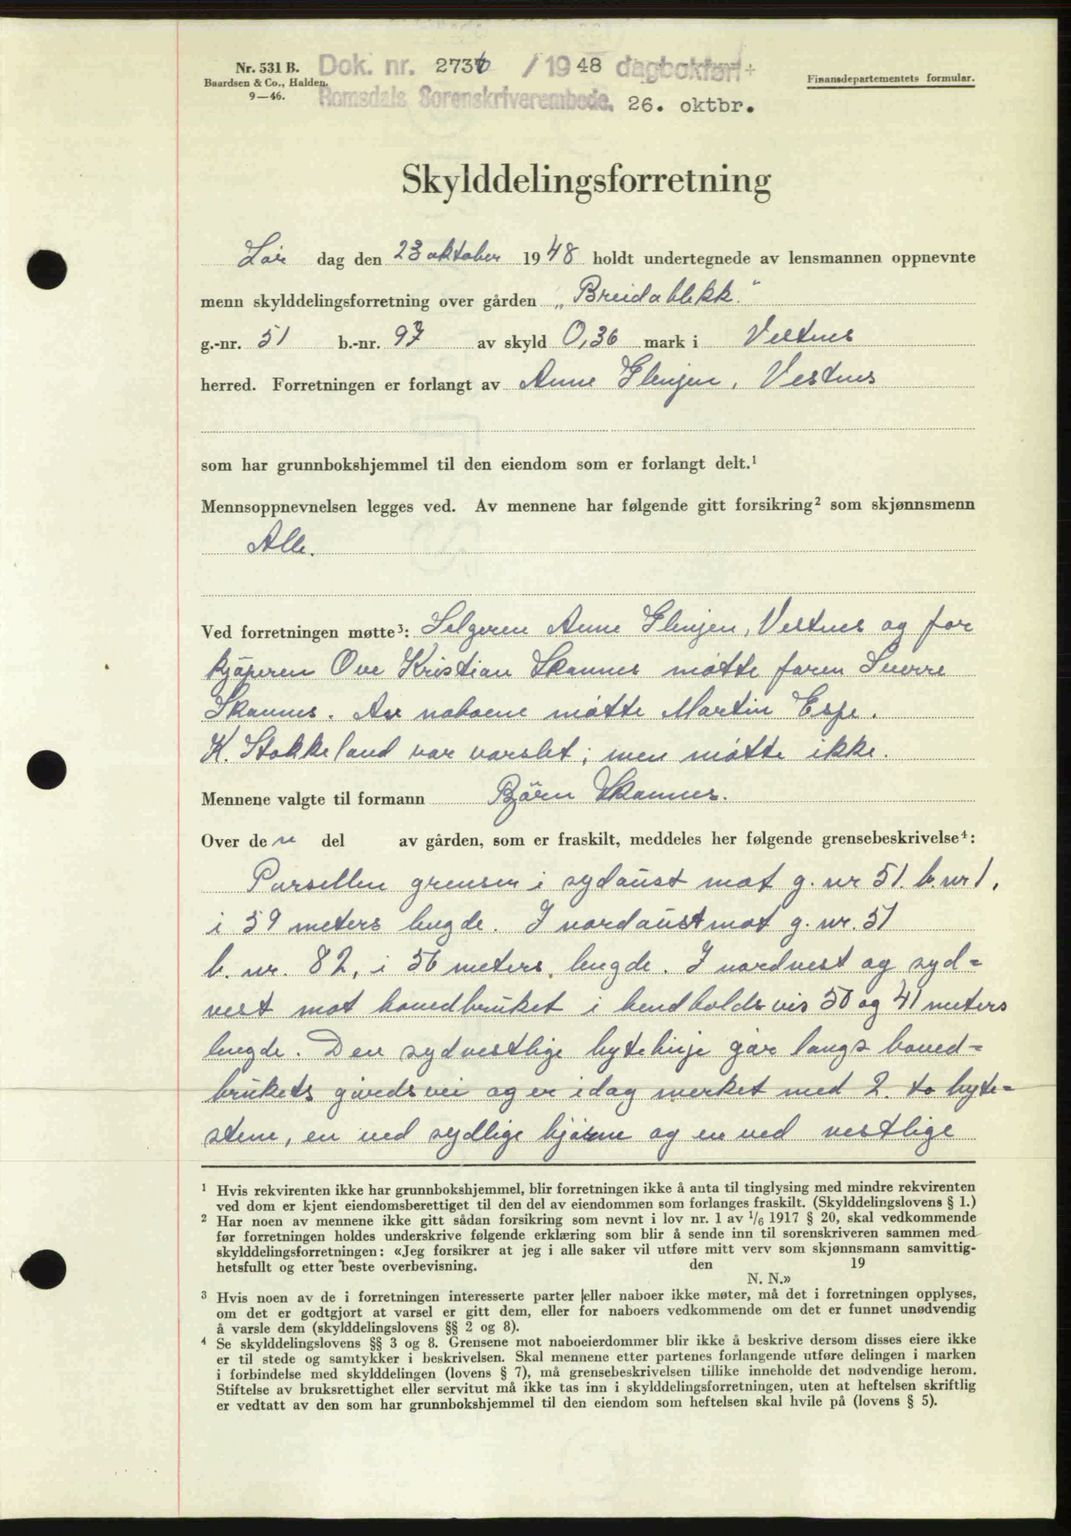 Nr. 531 B.
Baardsen & Co., Halden.
9—46.
Dok. nr. 2736 / 19 48 dagbokført
Romsdals Sorenskriverembede. 26. oktbr.
Finansdepartementets formular.
Skylddelingsforretning
Lör dag den 23 oktober 1948 holdt undertegnede av lensmannen oppnevnte
menn skylddelingsforretning over gården „Breidablikk."
g.-nr. 51 b.-nr. 97 av skyld 0,36 mark i Vestnes
herred. Forretningen er forlangt av Anne Elenjen, Vestnes
som har grunnbokshjemmel til den eiendom som er forlangt delt.¹
Mennsoppnevnelsen legges ved. Av mennene har følgende gitt forsikring² som skjønnsmenn
Alle.
Ved forretningen møtte³: Selgeren Anne Elenjen, Vestnes og for
kjöperen Ove Kristian Skaanes møtte faren Sverre
Skaanes. Av naboene møtte Martin Espe.
K. Stokkeland var varslet; men møtte ikke.
Mennene valgte til formann Björn Skaanes.
Over de n del av gården, som er fraskilt, meddeles her følgende grensebeskrivelse⁴:
Parsellen grenser i sydaust mot g. nr 51. b. nr 1,
i 59 meters lengde. I nordaust mot g. nr. 51
b. nr. 82, i 56 meters lengde. I nordvest og syd=
vest mot hovedbruket i hendholdsvis 50 og 41 meters
lengde. Den sydvestlige bytelinje går langs hoved=
brukets gårdsvei og er idag merket med 2. to byte=
stene, en ved sydlige hjörne og en ved vestlige
¹ Hvis rekvirenten ikke har grunnbokshjemmel, blir forretningen ikke å anta til tinglysing med mindre rekvirenten
ved dom er kjent eiendomsberettiget til den del av eiendommen som forlanges fraskilt. (Skylddelingslovens § 1.)
² Har noen av mennene ikke gitt sådan forsikring som nevnt i lov nr. 1 av ¹/₆ 1917 § 20, skal vedkommende
før forretningen holdes underskrive følgende erklæring som blir å sende inn til sorenskriveren sammen med
skylddelingsforretningen: «Jeg forsikrer at jeg i alle saker vil utføre mitt verv som skjønnsmann samvittig-
hetsfullt og etter beste overbevisning. den 19
N. N.»
³ Hvis noen av de i forretningen interesserte parter eller naboer ikke møter, må det i forretningen opplyses,
om det er godtgjort at varsel er gitt dem, eller for naboers vedkommende om det er funnet unødvendig
å varsle dem (skylddelingslovens §§ 2 og 8).
⁴ Se skylddelingslovens §§ 3 og 8. Grensene mot naboeierdommer blir ikke å beskrive dersom disses eiere ikke
er til stede og samtykker i beskrivelsen. Skal mennene etter partenes forlangende utføre delingen i marken
i forbindelse med skylddelingen (lovens § 7), må grensebeskrivelsen tillike inneholde det nødvendige herom.
Stiftelse av bruksrettighet eller servitut må ikke tas inn i skylddelingsforretningen, uten at heftelsen skriftlig
er vedtatt av den som har grunnbokshjemmel til den eiendom som heftelsen skal hvile på (lovens § 5).